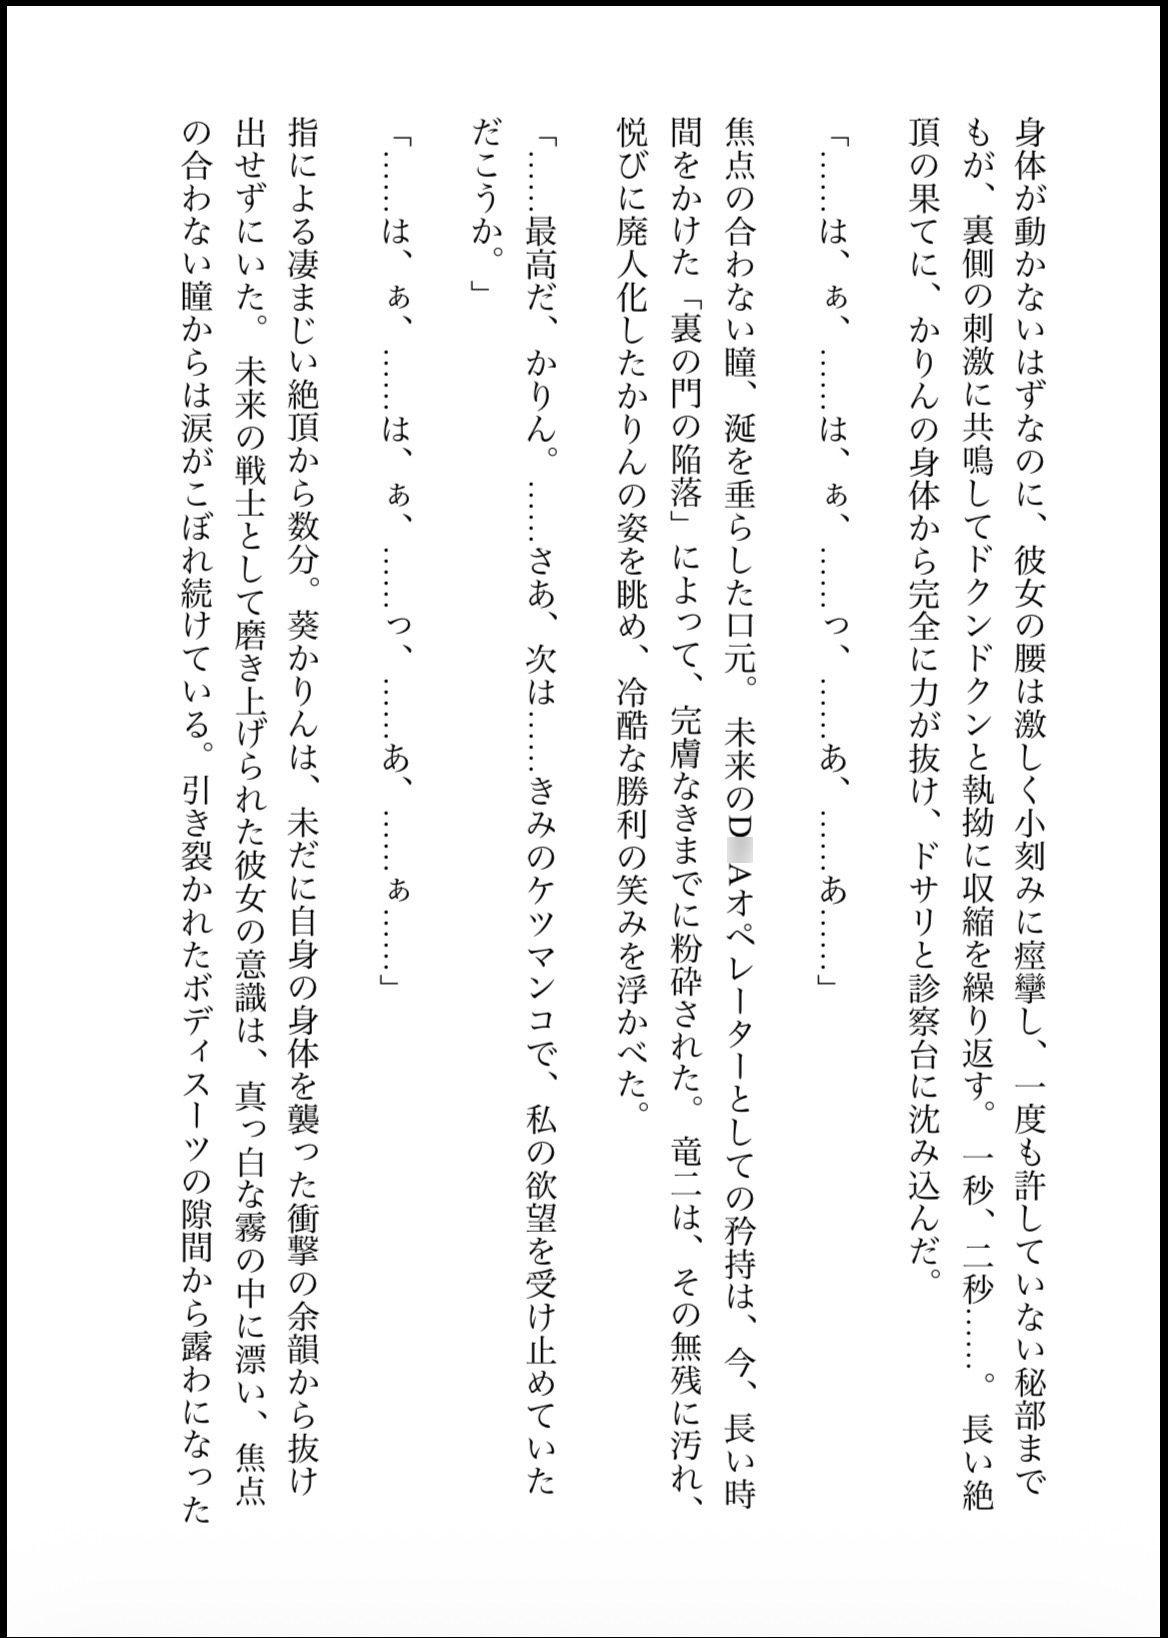 身体が動かないはずなのに、彼女の腰は激しく小刻みに痙攣し、一度も許していない秘部まで
もが、裏側の刺激に共鳴してドクンドクンと執拗に収縮を繰り返す。一秒、二秒……。長い絶
頂の果てに、かりんの身体から完全に力が抜け、ドサリと診察台に沈み込んだ。
「……は、ぁ、……は、ぁ、……っ、……あ、……あ……」
焦点の合わない瞳、涎を垂らした口元。未来のD Aオペレーターとしての矜持は、今、長い時
間をかけた「裏の門の陥落」によって、完膚なきまでに粉砕された。竜二は、その無残に汚れ、
悦びに廃人化したかりんの姿を眺め、冷酷な勝利の笑みを浮かべた。
「……最高だ、かりん。……さあ、次は……きみのケツマンコで、私の欲望を受け止めていた
だこうか。」
「……は、ぁ、……は、ぁ、……っ、……あ、……ぁ……」
指による凄まじい絶頂から数分。葵かりんは、未だに自身の身体を襲った衝撃の余韻から抜け
出せずにいた。未来の戦士として磨き上げられた彼女の意識は、真っ白な霧の中に漂い、焦点
の合わない瞳からは涙がこぼれ続けている。引き裂かれたボディスーツの隙間から露わになった